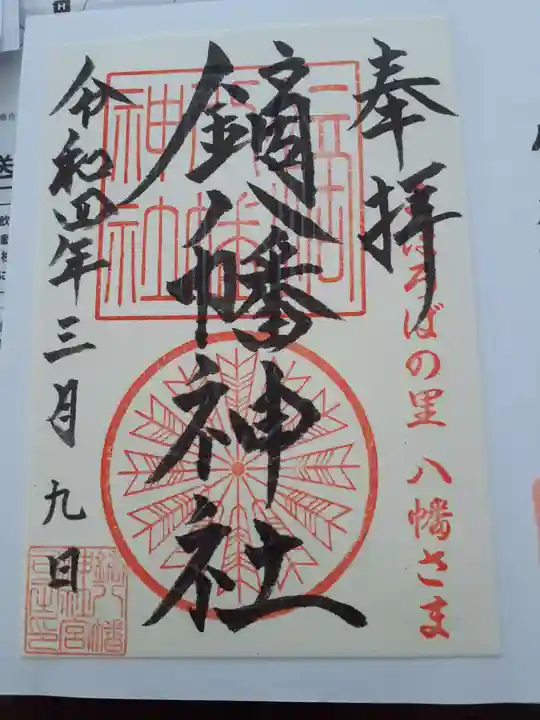 奉拝
まほろばの里 八幡さま
鏑八幡神社
令和四年三月九日
鏑八幡
神社宮
司之印